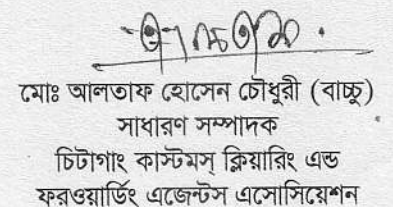 মোঃ আলতাফ হোসেন চৌধুরী (বাচ্চু)
সাধারণ সম্পাদক
চিটাগাং কাস্টমস্ ক্লিয়ারিং এন্ড
ফরওয়ার্ডিং এজেন্টস এসোসিয়েশন